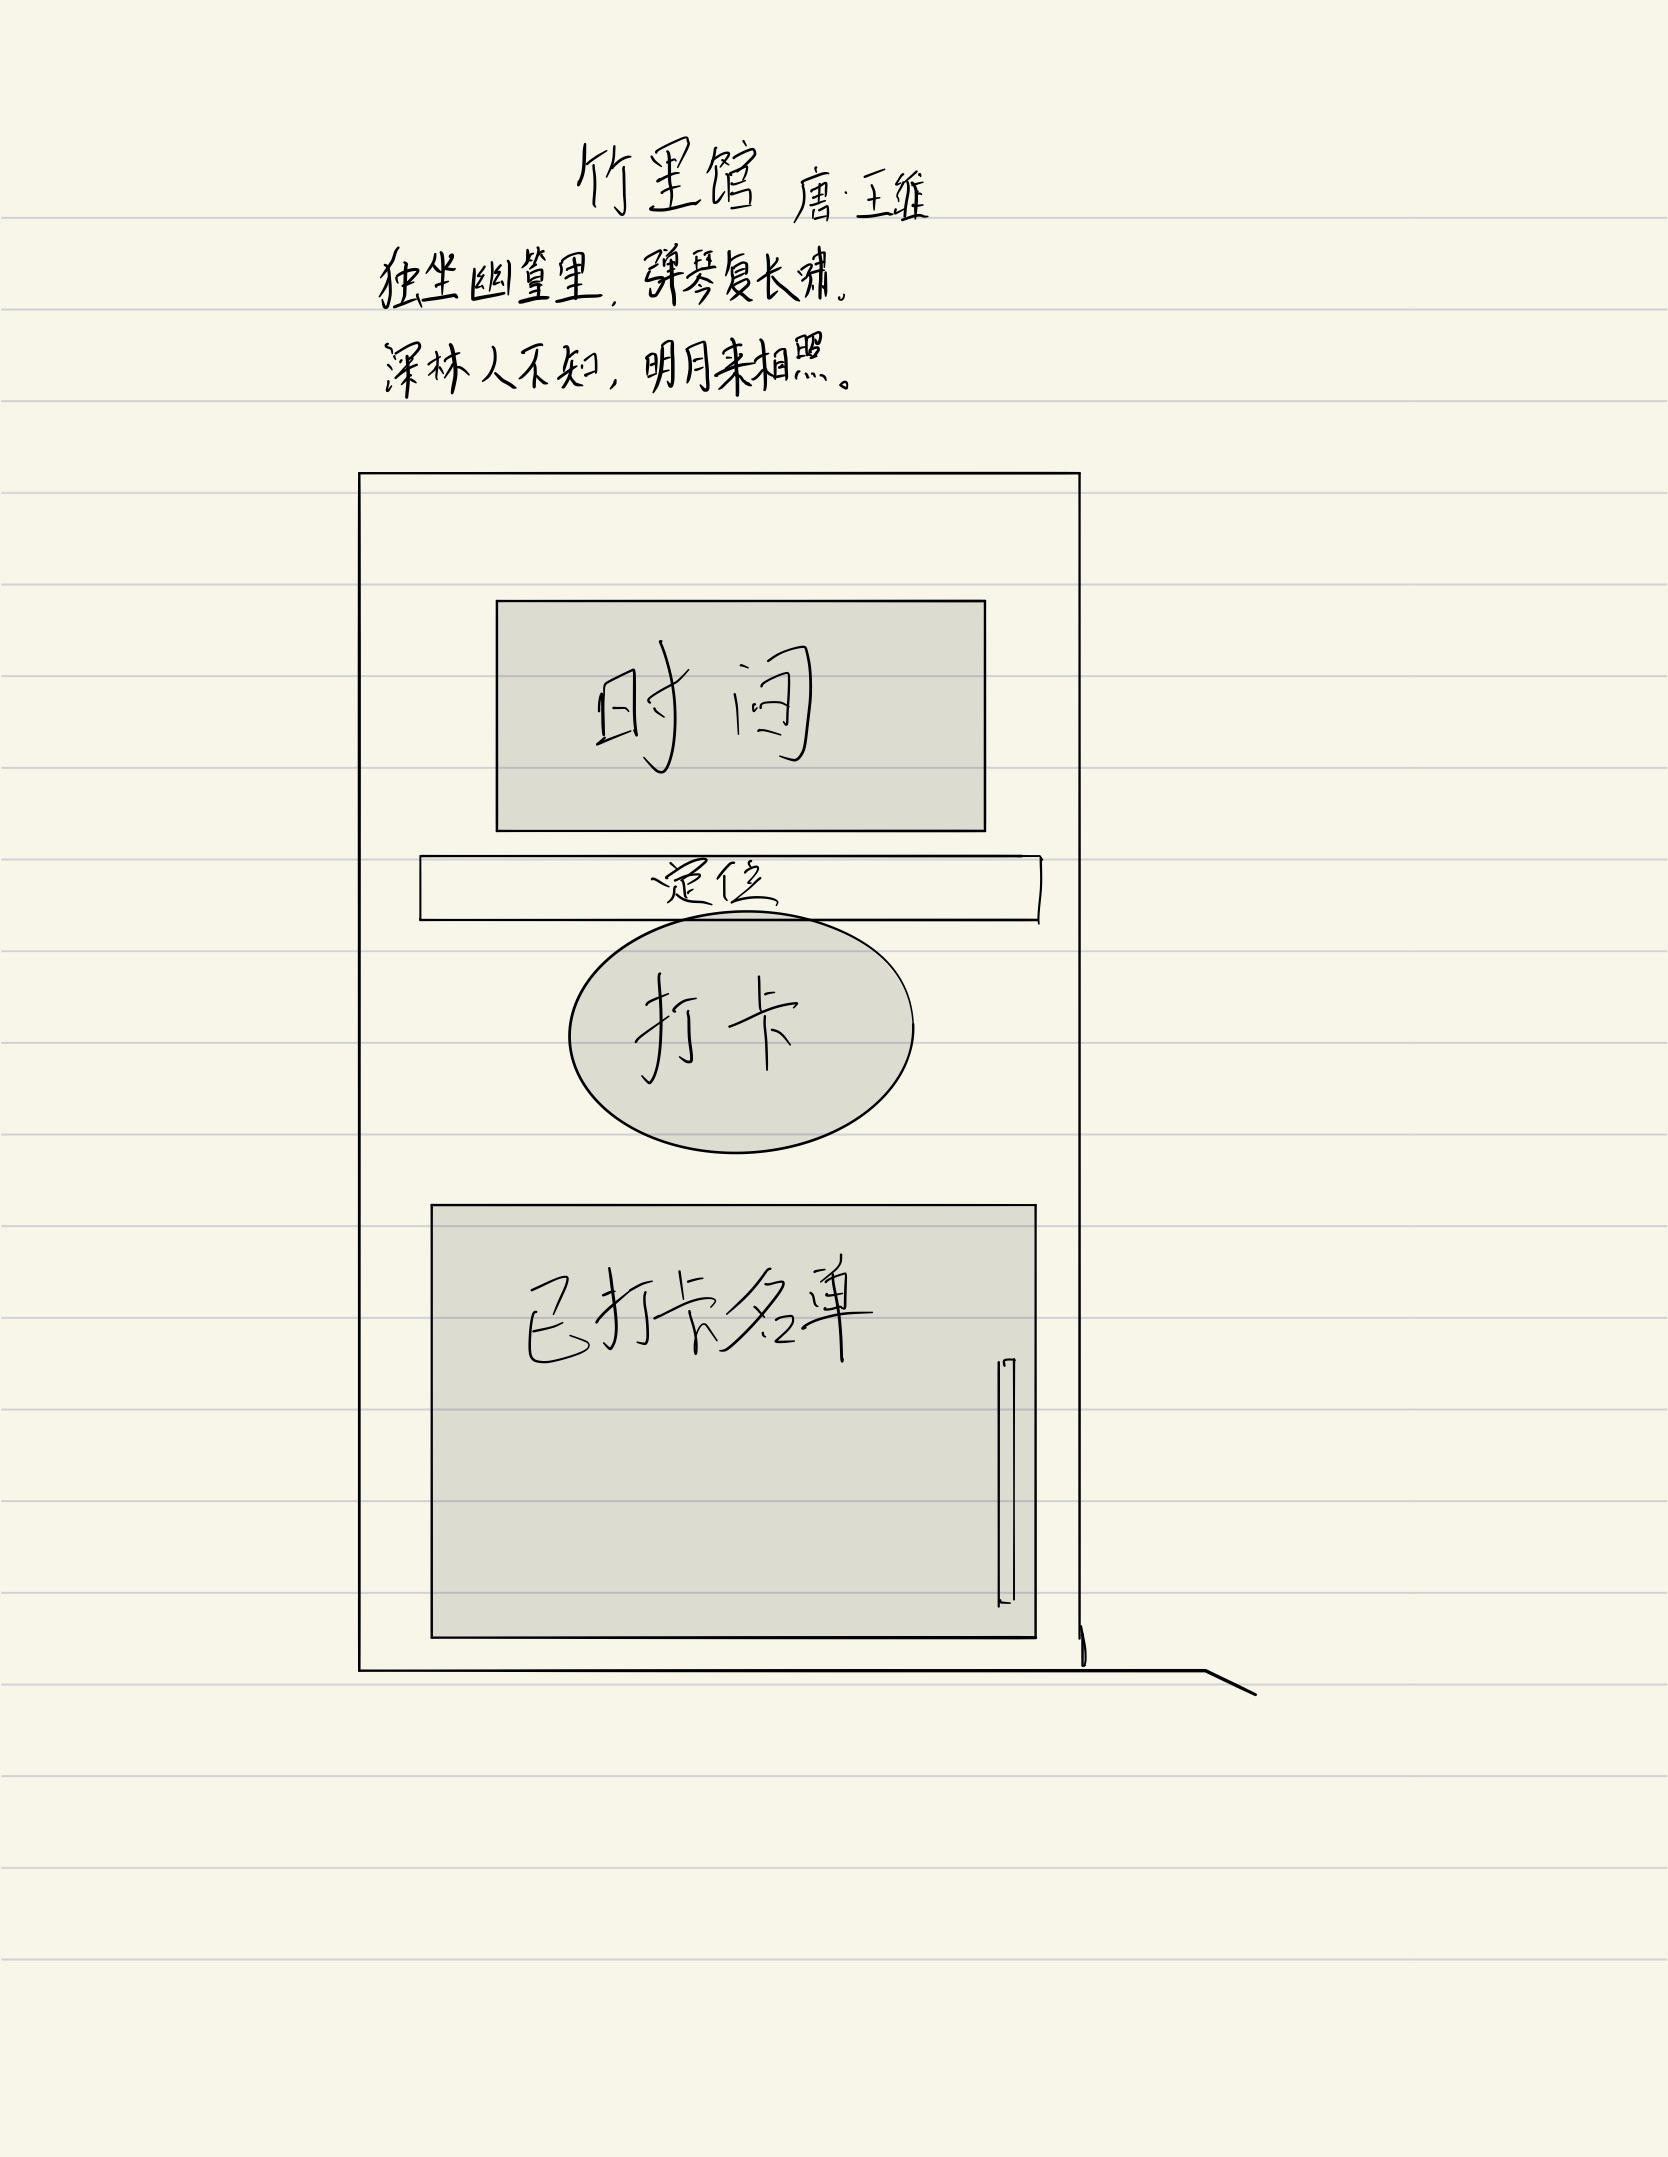 竹里馆 唐·王维
独坐幽篁里,弹琴复长啸。
深林人不知,明月来相照。
时间
定位
打卡
已打卡名单